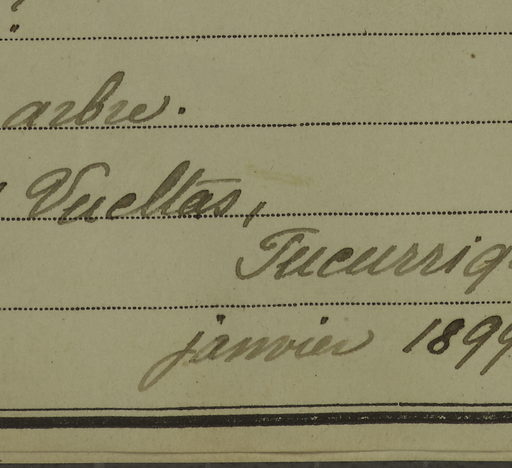 arbre.
Vueltas,
Tucurriq
janvier 1899